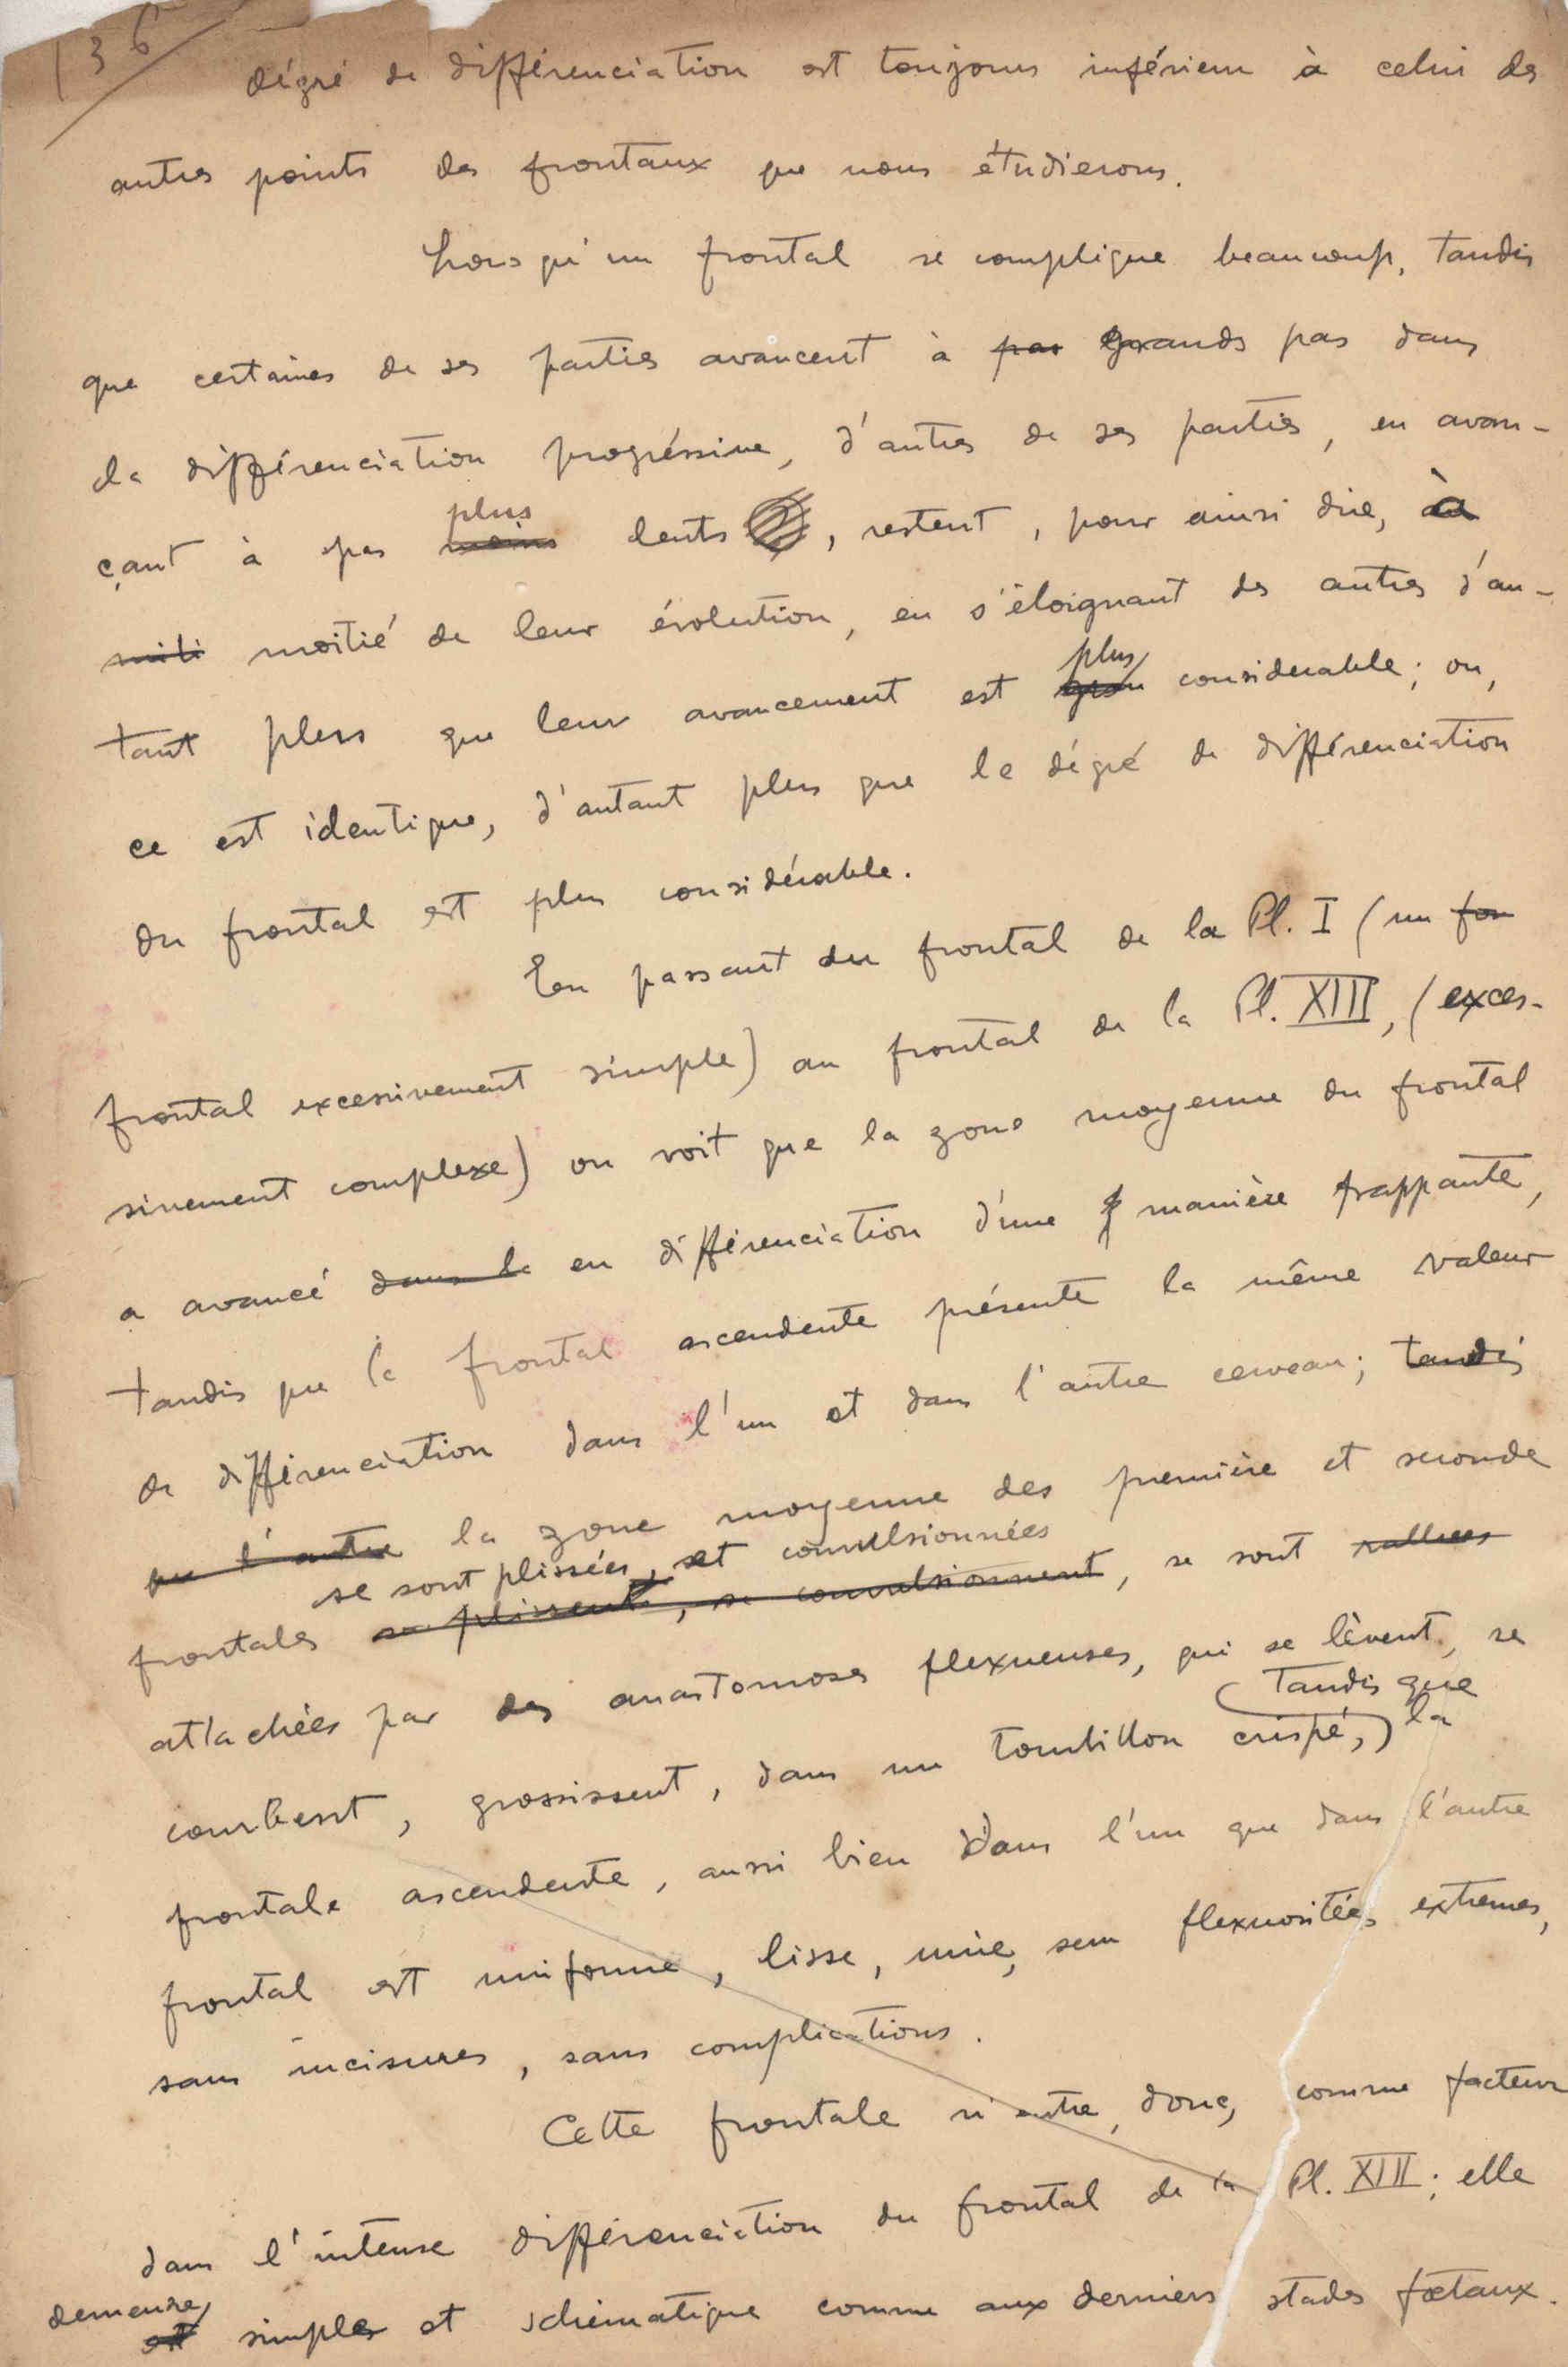 136
dégré de différenciation est toujours inférieur à celui des
autres points des frontaux que nous étudierons.
Lorsqu'un frontal se complique beaucoup, tandis
que certaines de ses parties avancent à pas grands pas dans
la différenciation progréssive, d'autres de ses parties, en avan-
plus
çant à pas moins lents , restent, pour ainsi dire, à
miti moitié de leur évolution, en s'éloignant des autres d'au-
plus
tant plus que leur avancement est gran considerable; ou,
ce est identique, d'autant plus que le dégré de différenciation
du frontal est plus considérable.
En passant du frontal de la Pl. I (un fon
frontal excessivement simple) au frontal de la Pl. XIII, (exces-
sivement complexe) on voit que la zone moyenne du frontal
a avancé dans la en différenciation d'une f manière frappante,
tandis que la frontal ascendente présente la même valeur
de différenciation dans l'un et dans l'autre cerveau; tandis
que l'autre la zone moyenne des première et seconde
se sont plissées, et convulsionnées
frontales se plissent, se convulsionnent, se sont
attachées par des anastomoses flexueuses, qui se lèvent, se
tandis que
courbent, grossissent, dans un tourbillon crispé, la
frontale ascendente, aussi bien dans l'un que dans l'autre
frontal est uniforme, lisse, unie, sem flexuositées extremes,
sans incisures, sans complications.
Cette frontale n'entre, donc, comme facteur
dans l'intense différenciation du frontal de la Pl. XIII; elle
demeure
est simple et schématique comme aux derniers stades fœtaux.